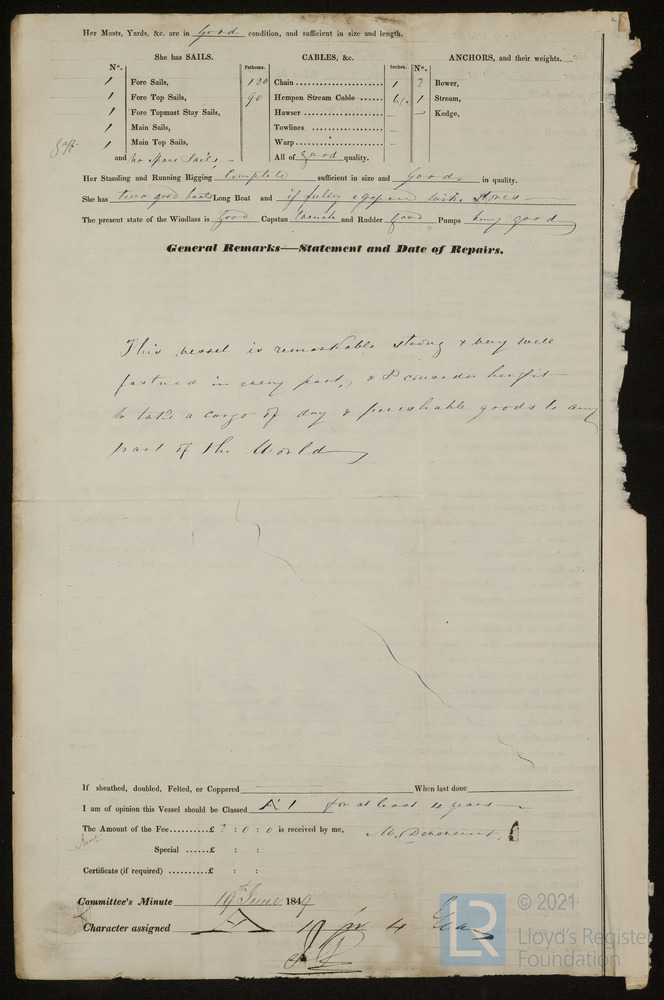 Her Masts, Yards, &c. are in Good condition, and sufficient in size and length.
She has SAILS. CABLES, &c. ANCHORS, and their weights.
N°. Fathoms. Inches. N°.
1 Fore Sails, 120 Chain 1 2 Bower,
1 Fore Top Sails, 90 Hempen Stream Cable 6½ 1 Stream,
1 Fore Topmast Stay Sails, Hawser — Kedge,
1 Main Sails, Towlines —
1 Main Top Sails, Warp
and no spare Sails All of good quality.
Her Standing and Running Rigging Complete sufficient in size and Good in quality.
She has two good boats Long Boat and is fully with Stores
The present state of the Windlass is Good Capstan and Rudder Good Pumps good
General Remarks—Statement and Date of Repairs.
This vessel is remarkable strong & very well
fastned in every part, & I consider her fit
to take a cargo of dry & pereshable goods to any
part of the World
If sheathed, doubled, Felted, or Coppered When last done
I am of opinion this Vessel should be Classed A 1 for at least 4 years
The Amount of the Fee £ 2 : 0 : 0 is received by me,
Special £ : :
Certificate (if required) £ : :
Committee's Minute 19th June 1849
Character assigned A 1 4 Years
LR © 2021
Lloyd's Register
Foundation